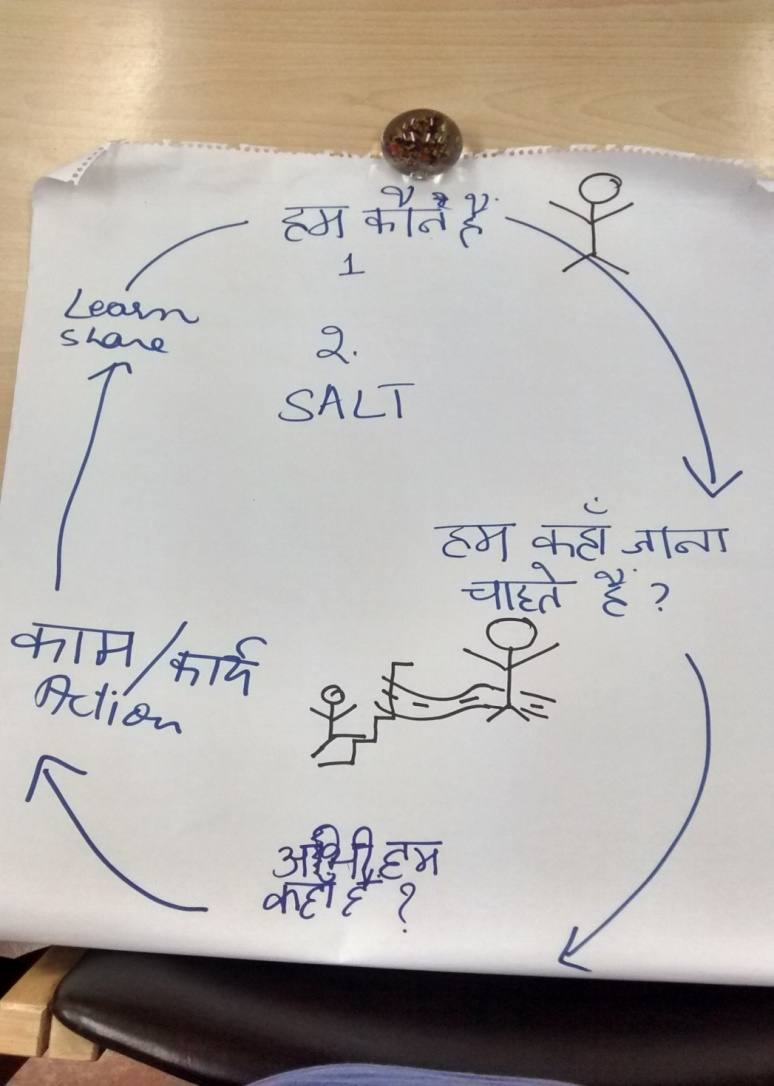 हम कौन हैं
1
2.
SALT
हम कहाँ जाना
चाहते हैं ?
अभी हम
कहाँ हैं ?
काम / कार्य
Action
Learn
share